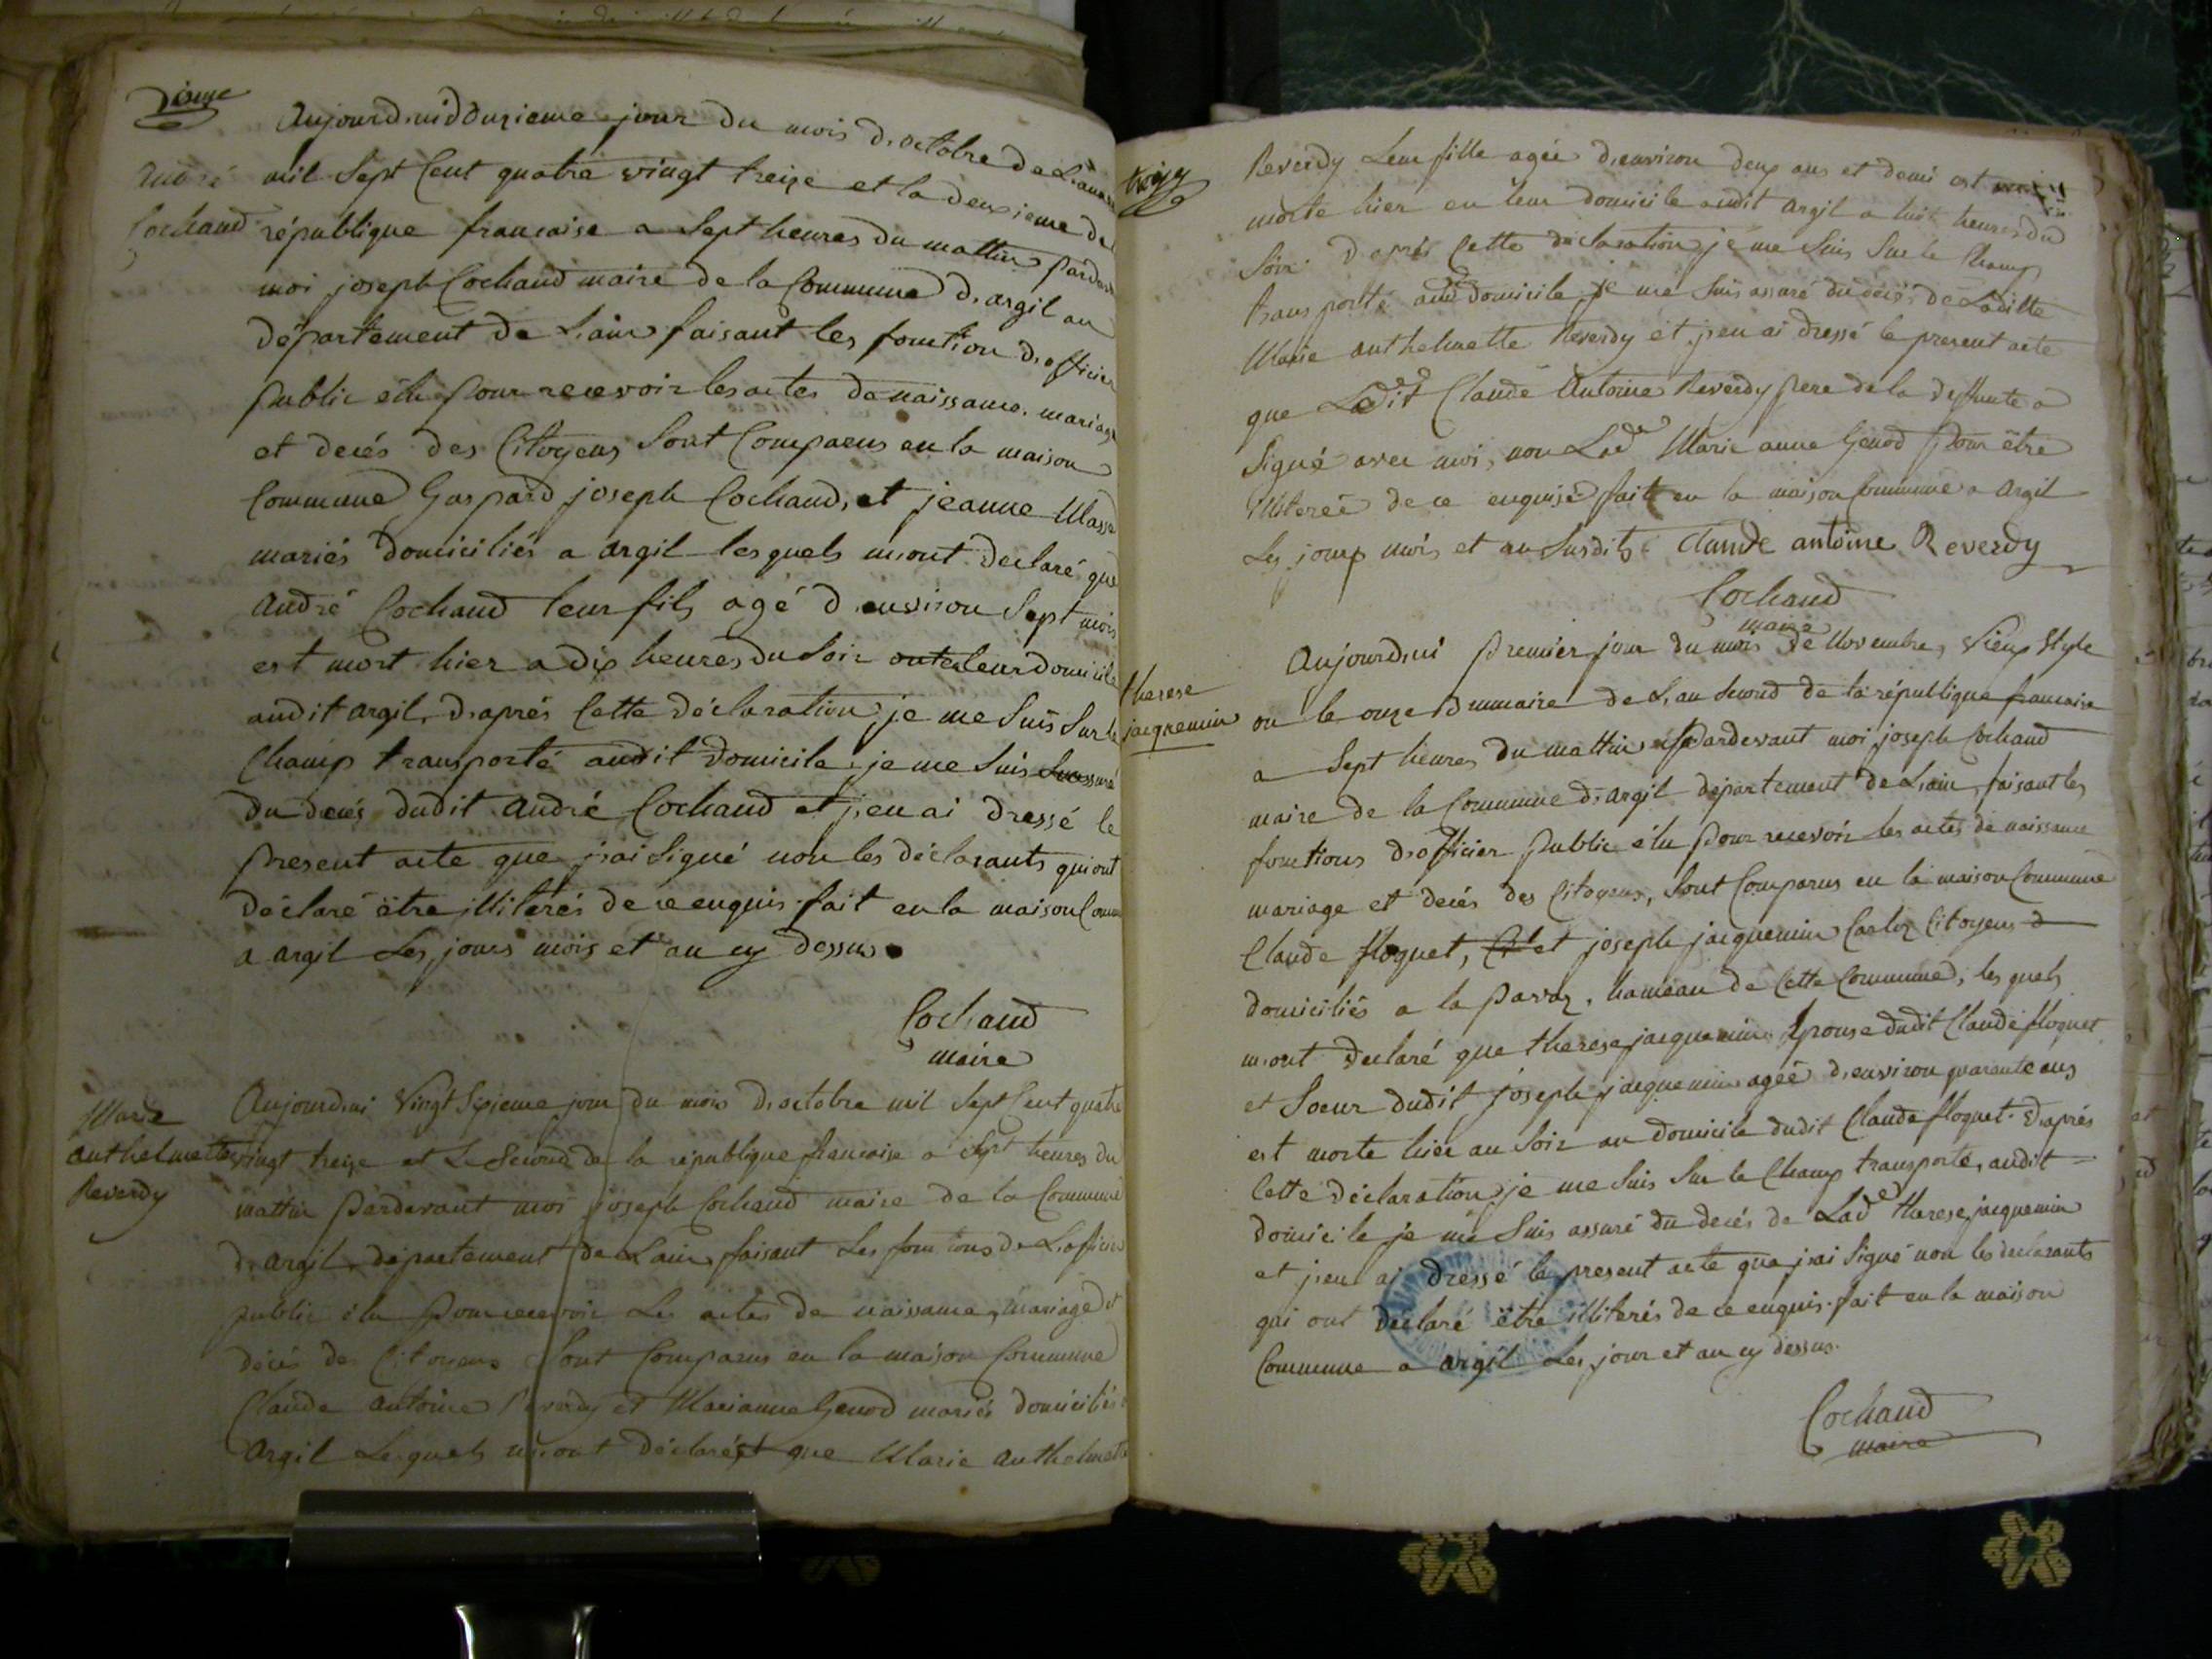 André
Cochaud
Aujourd,uid duzieme jour du mois d,octobre de L,anée
mil Sept Cent quatre vingt treize et la deuxieme de
république francaise a Sept heures du mattin pardev
moi joseph Cochaud maire de la Commune d,argil au
département de L,ain faisant les fonction d,officier
public élu pour recevoir les actes de naissance, mariage
et decés des Citoyens Sont Comparus en la maison
Commune Gaspard joseph Cochaud, et jeanne Masse
mariés domiciliés a argil lesquels m,ont declaré que
André Cochaud leur fils agé d,environ Sept mois
est mort hier a dix heures du Soir leur domicile
audit argil, d,aprés Cette déclaration je me Suis Sur le
Champ transporté audit domicile, je me Suis
du decés dudit André Cochaud et j,en ai dressé le
present acte que j,ai Signé non les déclarants qui ont
déclaré être illiterés de ce enquis. fait en la maison Comm
a argil Les jours mois et an cy dessus
Cochaud
maire
Marie
anthelmette
Reverdy
Aujourd,ui Vingt Sixieme jour du mois d,octobre mil Sept Cent quatre
vingt treize et Le Second de la république francaise a Sept heures du
mattin pardevant moi joseph Cochaud maire de la Commune
d,argil, département de L,ain faisant Les fonctions de L,officier
public élu pour recevoir Les actes de naissance, mariage et
décés des Citoyens Sont Comparus en la maison Commune
Claude antoine Reverdy et Marianne Genod mariés domiciliés
argil Lesquels m,ont déclaré que Marie Anthelmette
Reverdy Leur fille agée d,environ deux ans et demi est
morte hier en leur domicile audit argil a huit heures du
Soir. d,aprés Cette déclaration je me Suis Sur le Champ
transporté aud domicile je me Suis assuré du decés de Laditte
Marie anthelmette Reverdy et j,en ai dressé le present acte
que Ledit Claude Antoine Reverdy pere de la deffunte a
Signé avec moi, non Lade Marie anne Genod pour être
illiterée de ce enquise fait en la maison Commune a Argil
Les jours mois et an Susdits. Claude antoine Reverdy
Cochaud
maire
therese
jacquemin
Aujourd,ui premier jour du mois de Novembre, vieux Style
ou le onze Brumaire de L,an Second de la république francaise
a Sept heures du mattin pardevant moi joseph Cochaud
maire de la Commune d,argil département de L,ain, faisant les
fonctions d,officier public élu pour recevoir les actes de naissance
mariage et decés des Citoyens, Sont Comparus en la maison Commune
Claude floquet, et joseph jacquemin Citoyens
domiciliés a la Pavaz, hameau de Cette Commune, lesquels
m,ont declaré que therese jacquemin Epouse dudit Claude floquet
et Soeur dudit joseph jacquemin agée d,environ quarante ans
est morte hier au Soir au domicile dudit Claude floquet. d,aprés
Cette déclaration je me Suis Sur le Champ transporté, audit
domicile je me Suis assuré du decés de Lade therese jacquemin
et j,en ai dressé le present acte que j,ai Signé non les declarants
qui ont declaré être illiterés de ce enquis. fait en la maison
Commune a argil Les jour et an cy dessus.
Cochaud
maire